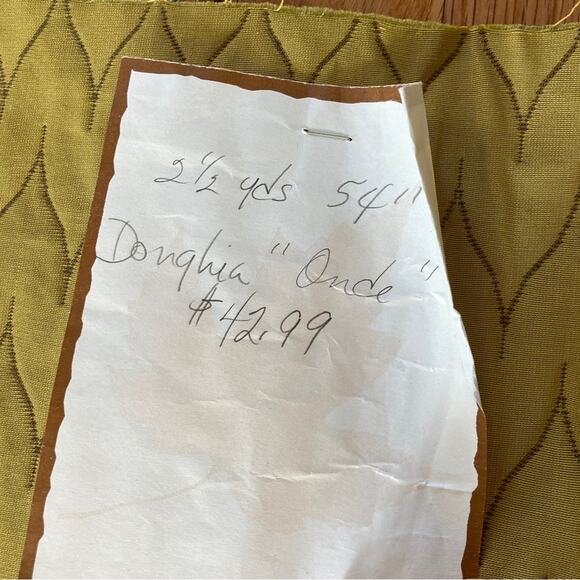 2 1/2 yds 54"
Donghia "Onde"
$42.99